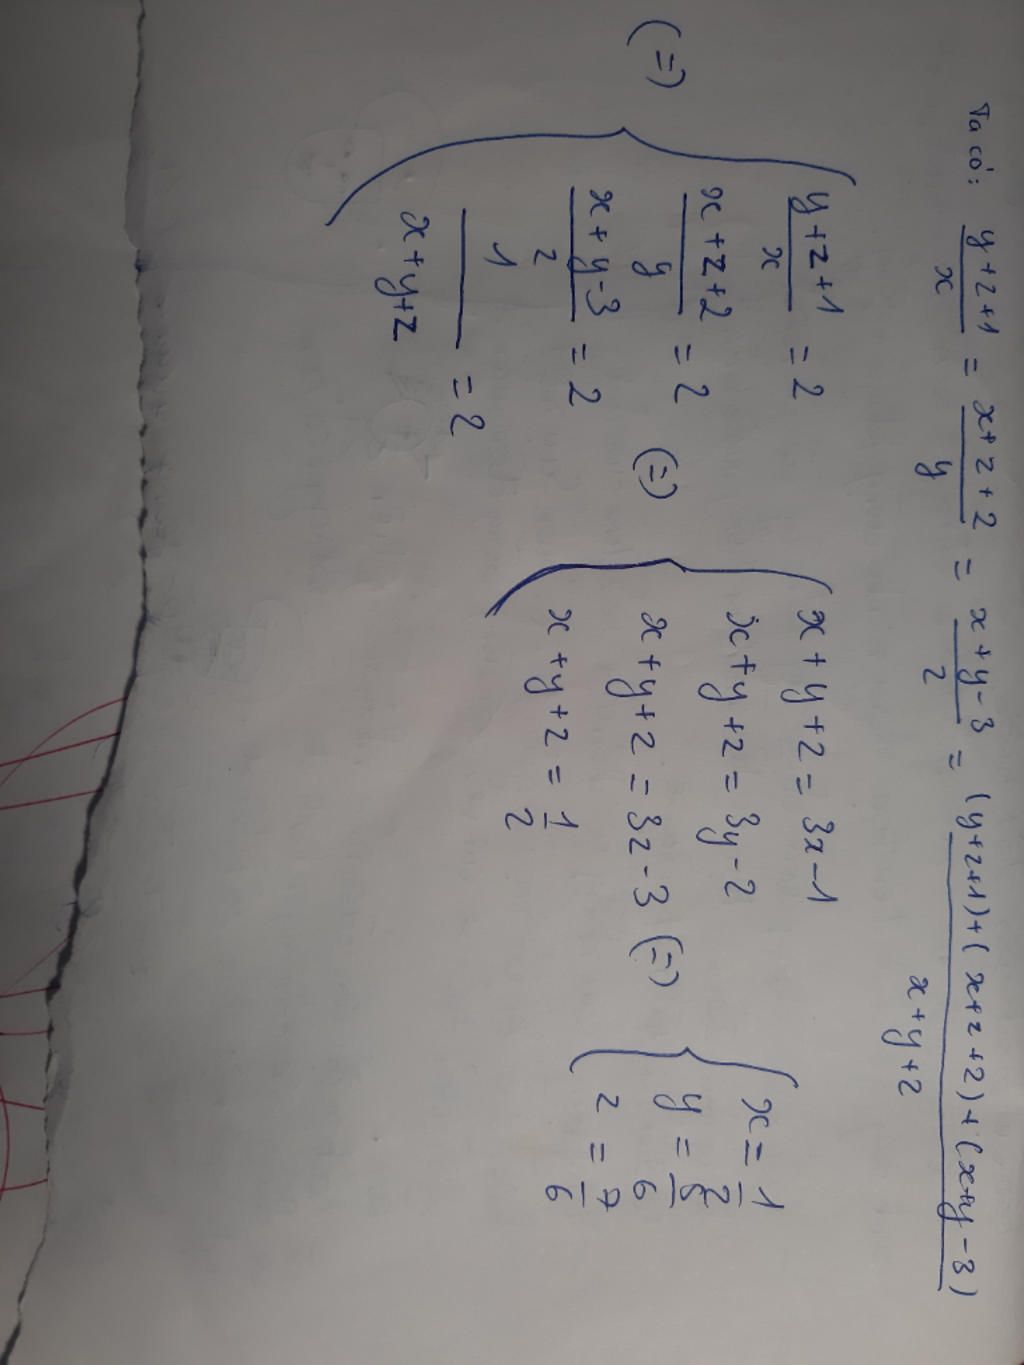 Ta có: (y+z+1)/x = (x+z+2)/y = (x+y-3)/z = ((y+z+1)+(x+z+2)+(x+y-3))/(x+y+z)
(=) { (y+z+1)/x = 2
(x+z+2)/y = 2
(x+y-3)/z = 2
1/(x+y+z) = 2
(=) { x+y+z = 3x-1
x+y+z = 3y-2
x+y+z = 3z-3
x+y+z = 1/2
(=) { x = 1/2
y = 5/6
z = 7/6